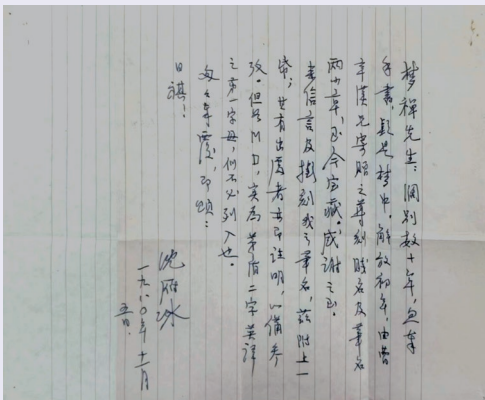 梦禅先生：阔别数十年，忽奉
手书，疑是梦中。解放初年，由曹
辛汉兄寄赠之尊刻贱名及笔名
两小章，至今宝藏。感谢之至。
来信言及拟刻我之笔名，兹附上一
纸；其有出处者亦已注明，以备参
考。但如M D，实为茅盾二字英译
之第一字母，似不必列入也。
匆此奉覆，即颂：
日祺！
沈雁冰
一九八〇年十二月
五日